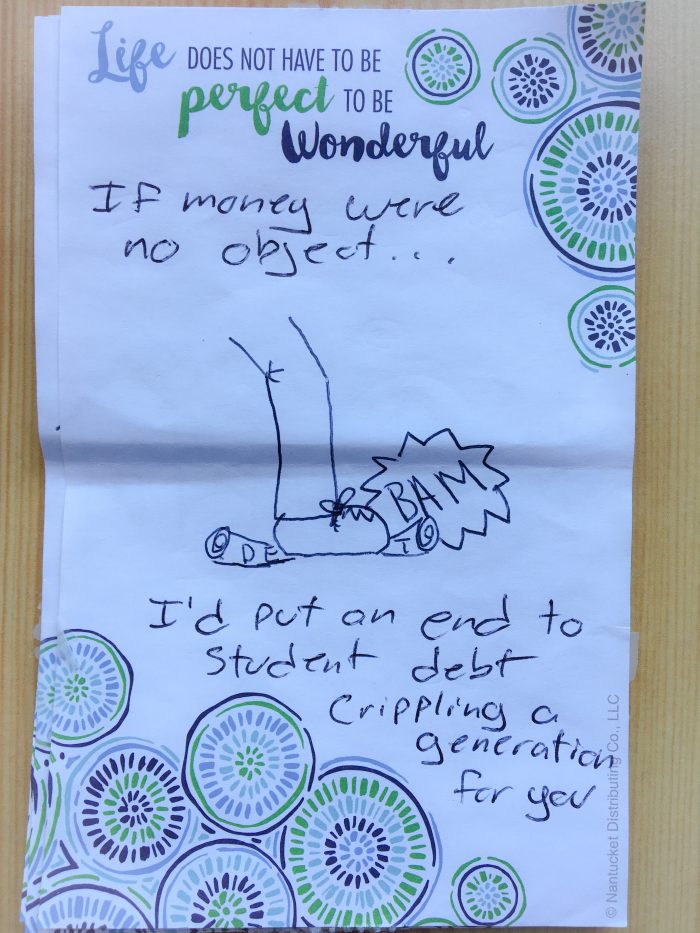 Life DOES NOT HAVE TO BE
perfect TO BE
Wonderful
If money were
no object...
BAM
DE T
I'd put an end to
student debt
crippling a
generation
for you
© Nantucket Distributing Co., LLC